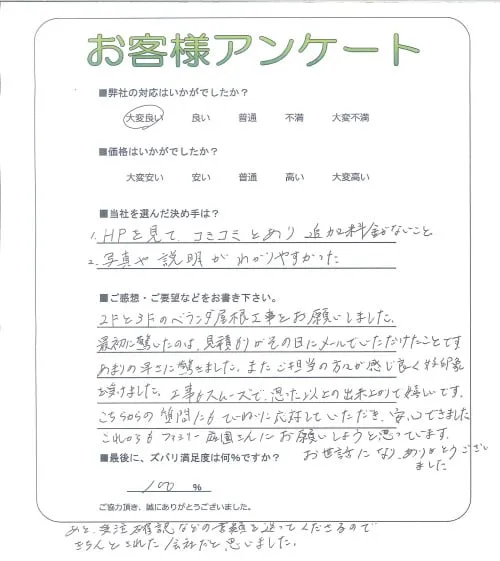 お客様アンケート
■弊社の対応はいかがでしたか？
大変良い 良い 普通 不満 大変不満
■価格はいかがでしたか？
大変安い 安い 普通 高い 大変高い
■当社を選んだ決め手は？
1. HPを見て、コミコミとあり 追加料金がないこと
2. 写真や説明がわかりやすかった
■ご感想・ご要望などをお書き下さい。
2Fと3Fのベランダ屋根工事をお願いしました。
最初に驚いたのは、見積もりがその日にメールでいただけたことです
あまりの早さに驚きました。またご担当の方々が感じ良く好印象
を受けました。工事もスムーズで、思った以上の出来上がりで嬉しいです。
こちらからの質問にもていねいに応対していただき、安心できました
これからもファミリー庭園さんにお願いしようと思っています。
お世話になり、ありがとうござい
ました
■最後に、ズバリ満足度は何%ですか？
100 %
ご協力頂き、誠にありがとうございました。
あと、受注確認などの書類を送ってくださるので
きちんとされた会社だと思いました。